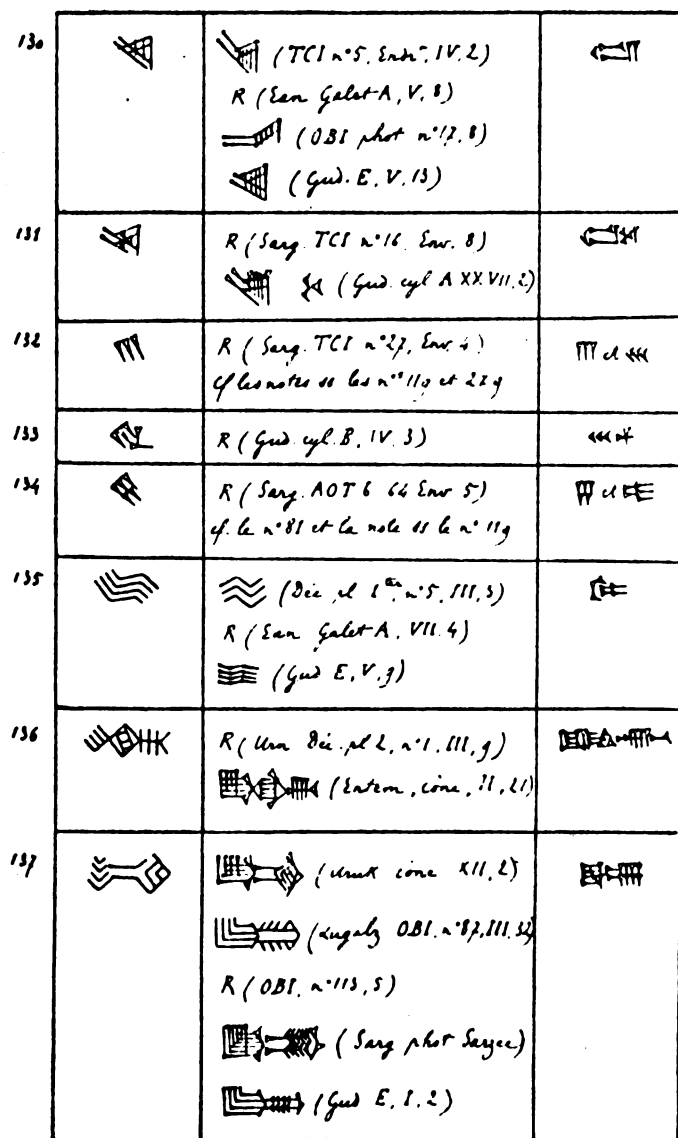 130
(TCI n°5, Env., IV, 2)
R (Ean Galet A, V, 8)
(OBI phot n°17, 8)
(Gud. E, V, 13)
131
R (Sarg. TCI n°16, Env. 8)
(Gud. cyl A XXVII, 2)
132
R (Sarg. TCI n°27, Env. 4)
et
cf les notes ss les n°s 119 et 279
133
R (Gud. cyl. B, IV. 3)
134
R (Sarg. AOT 6 64 Env 5)
et
cf. le n°81 et la note ss le n° 119
135
(Déc pl n°5, III, 3)
R (Ean Galet A, VII. 4)
(Gud E, V, 9)
136
R (Urn Déc. pl 2, n°1, III, 9)
(Entem, cône, II, 21)
137
(Uruk cône XII, 2)
(Lugalz OBI. n°87, III, 32)
R (OBI, n°113, 5)
(Sarg phot Sarzec)
(Gud E, I, 2)